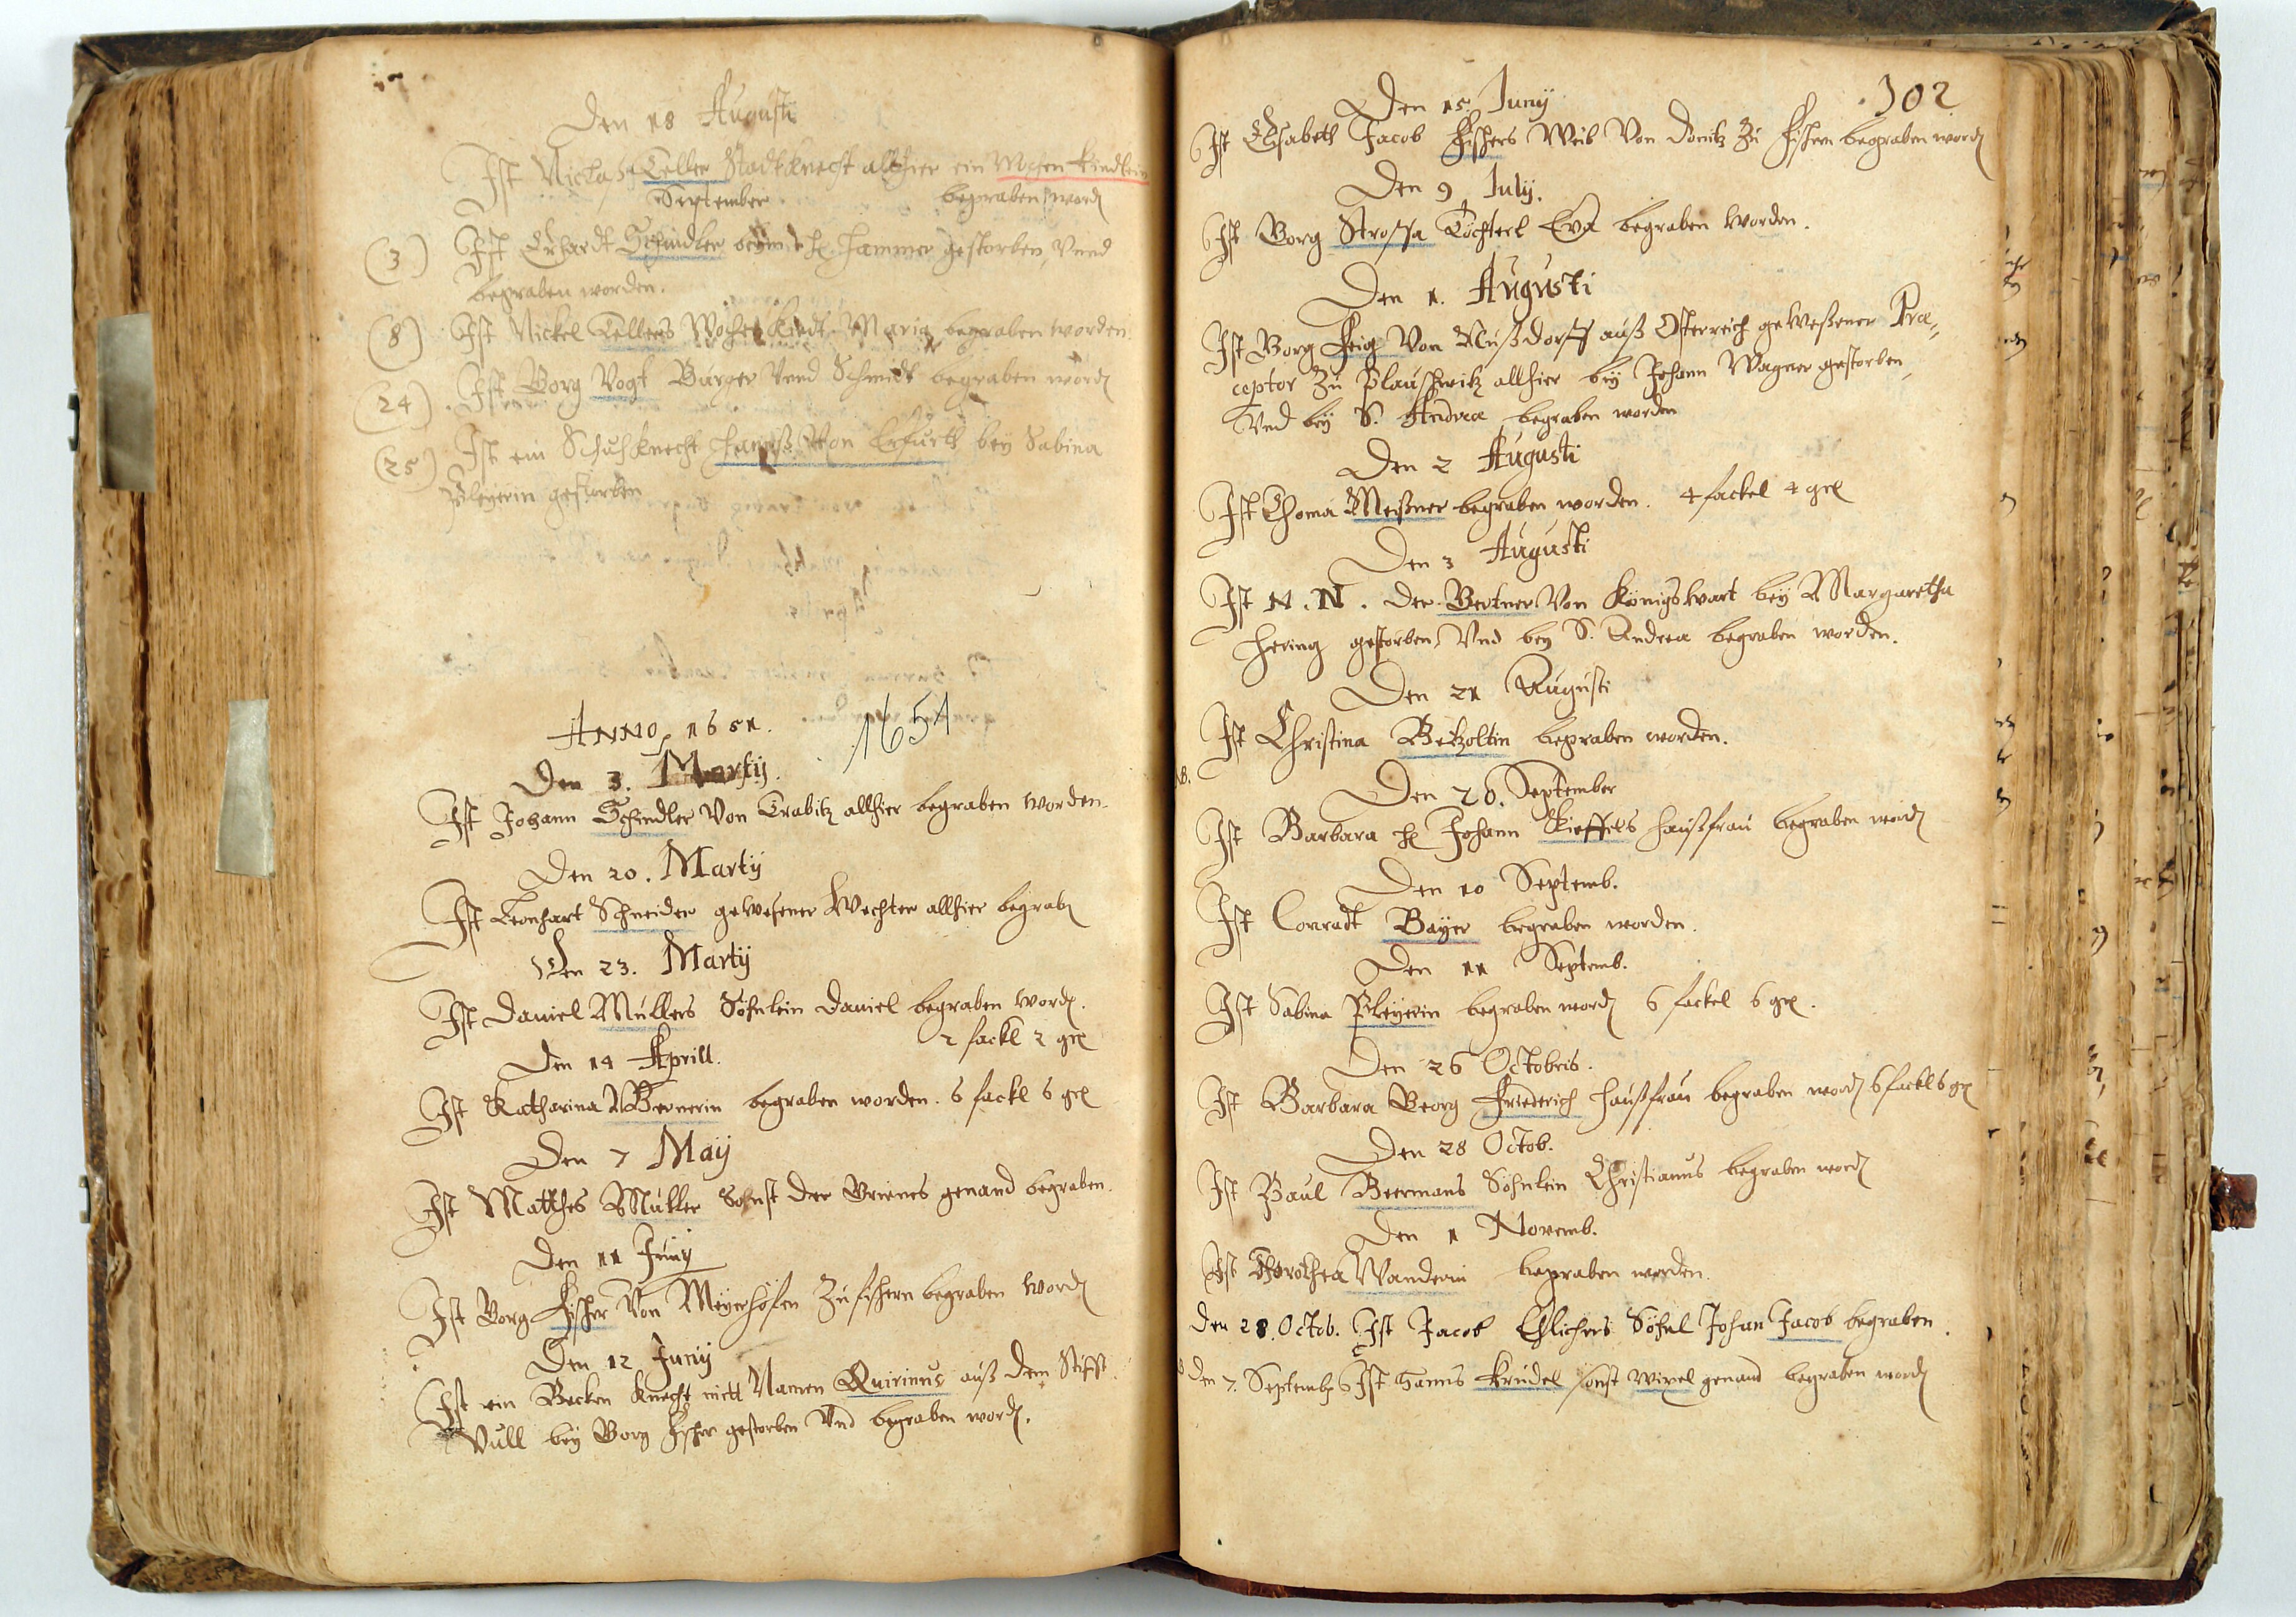 Den 18 Augusti
Ist Nicklaß Teller Stadtknecht allhier ein Wochen Kindlein
begraben word
September
(3) Ist Erhardt Schindler beym H. Hammer gestorben, Vnnd
begraben worden.
(8) Ist Nickel Tellers Wochen Kindt Maria begraben worden
(24) Ist Georg Vogt Burger Vnnd Schmidt begraben word
(25) Ist ein Schuhknecht Hannß Von Erfurth bey Sabina
Pleyerin gestorben
ANNO 1651. 1651
Den 3. Martij.
Ist Johann Schindler Von Trabitz allhier begraben worden.
Den 20. Martij
Ist Leonhart Schneider geweßener Wechter allhier begrab
Den 23. Martij
Ist Daniel Müllers Söhnlein Daniel begraben word.
2 fackl 2 grl
Den 14 Aprill.
Ist Katharina Wernerin begraben worden. 6 fackl 6 grl
Den 7 Maÿ
Ist Matthes Müller Sonst der genand begraben.
Den 11 Junÿ
Ist Georg Fischer Von Meyerhöfen Zu fischern begraben word
Den 12 Junÿ
Ist ein Becken Knecht mitt Namen Quirinus auß dem Stifft
Vull bey Georg Fischer gestorben Vnd begraben word.
102
Den 15 Junÿ
Ist Elisabeth Jacob Fischers Weib Von Donitz Zu Fischern begraben word
Den 9 Julÿ.
Ist Georg Strossa Töchterl Eva begraben worden.
Den 1. Augusti
Ist Georg Feig Von Nußdorff auß Osterreich geweßener Præ
ceptor Zu Plauschwitz allhier beÿ Johann Wagner gestorben,
Vnd beÿ S. Andrea begraben worden
Den 2 Augusti
Ist Thoma Meißner begraben worden. 4 fackel 4 grl
Den 3 Augusti
Ist N. N. der Gertner Von Königswart beÿ Margaretha
Hering gestorben, Vnd bey S. Andrea begraben worden.
Den 21 Augusti
Ist Christina Betzoltin begraben worden.
NB.
Den 28. September
Ist Barbara H. Johann Kieffels Haußfrau begraben word
Den 10 Septemb.
Ist Conradt Bayer begraben worden.
Den 11 Septemb.
Ist Sabina Pleyerin begraben word 6 fackel 6 grl.
Den 26 Octobris.
Ist Barbara Georg Friederich Haußfrau begraben word 6 fackl 6 gr
Den 28 Octob.
Ist Paul Beermans Söhnlein Christianus begraben word
Den 1 Novemb.
Ist Dorothea Wanderin begraben worden.
Den 28. Octob. Ist Jacob Ehlichers Söhnl Johan Jacob begraben.
Den 7. Septemb. Ist Hanns Krudel sonst Wixel genand begraben word